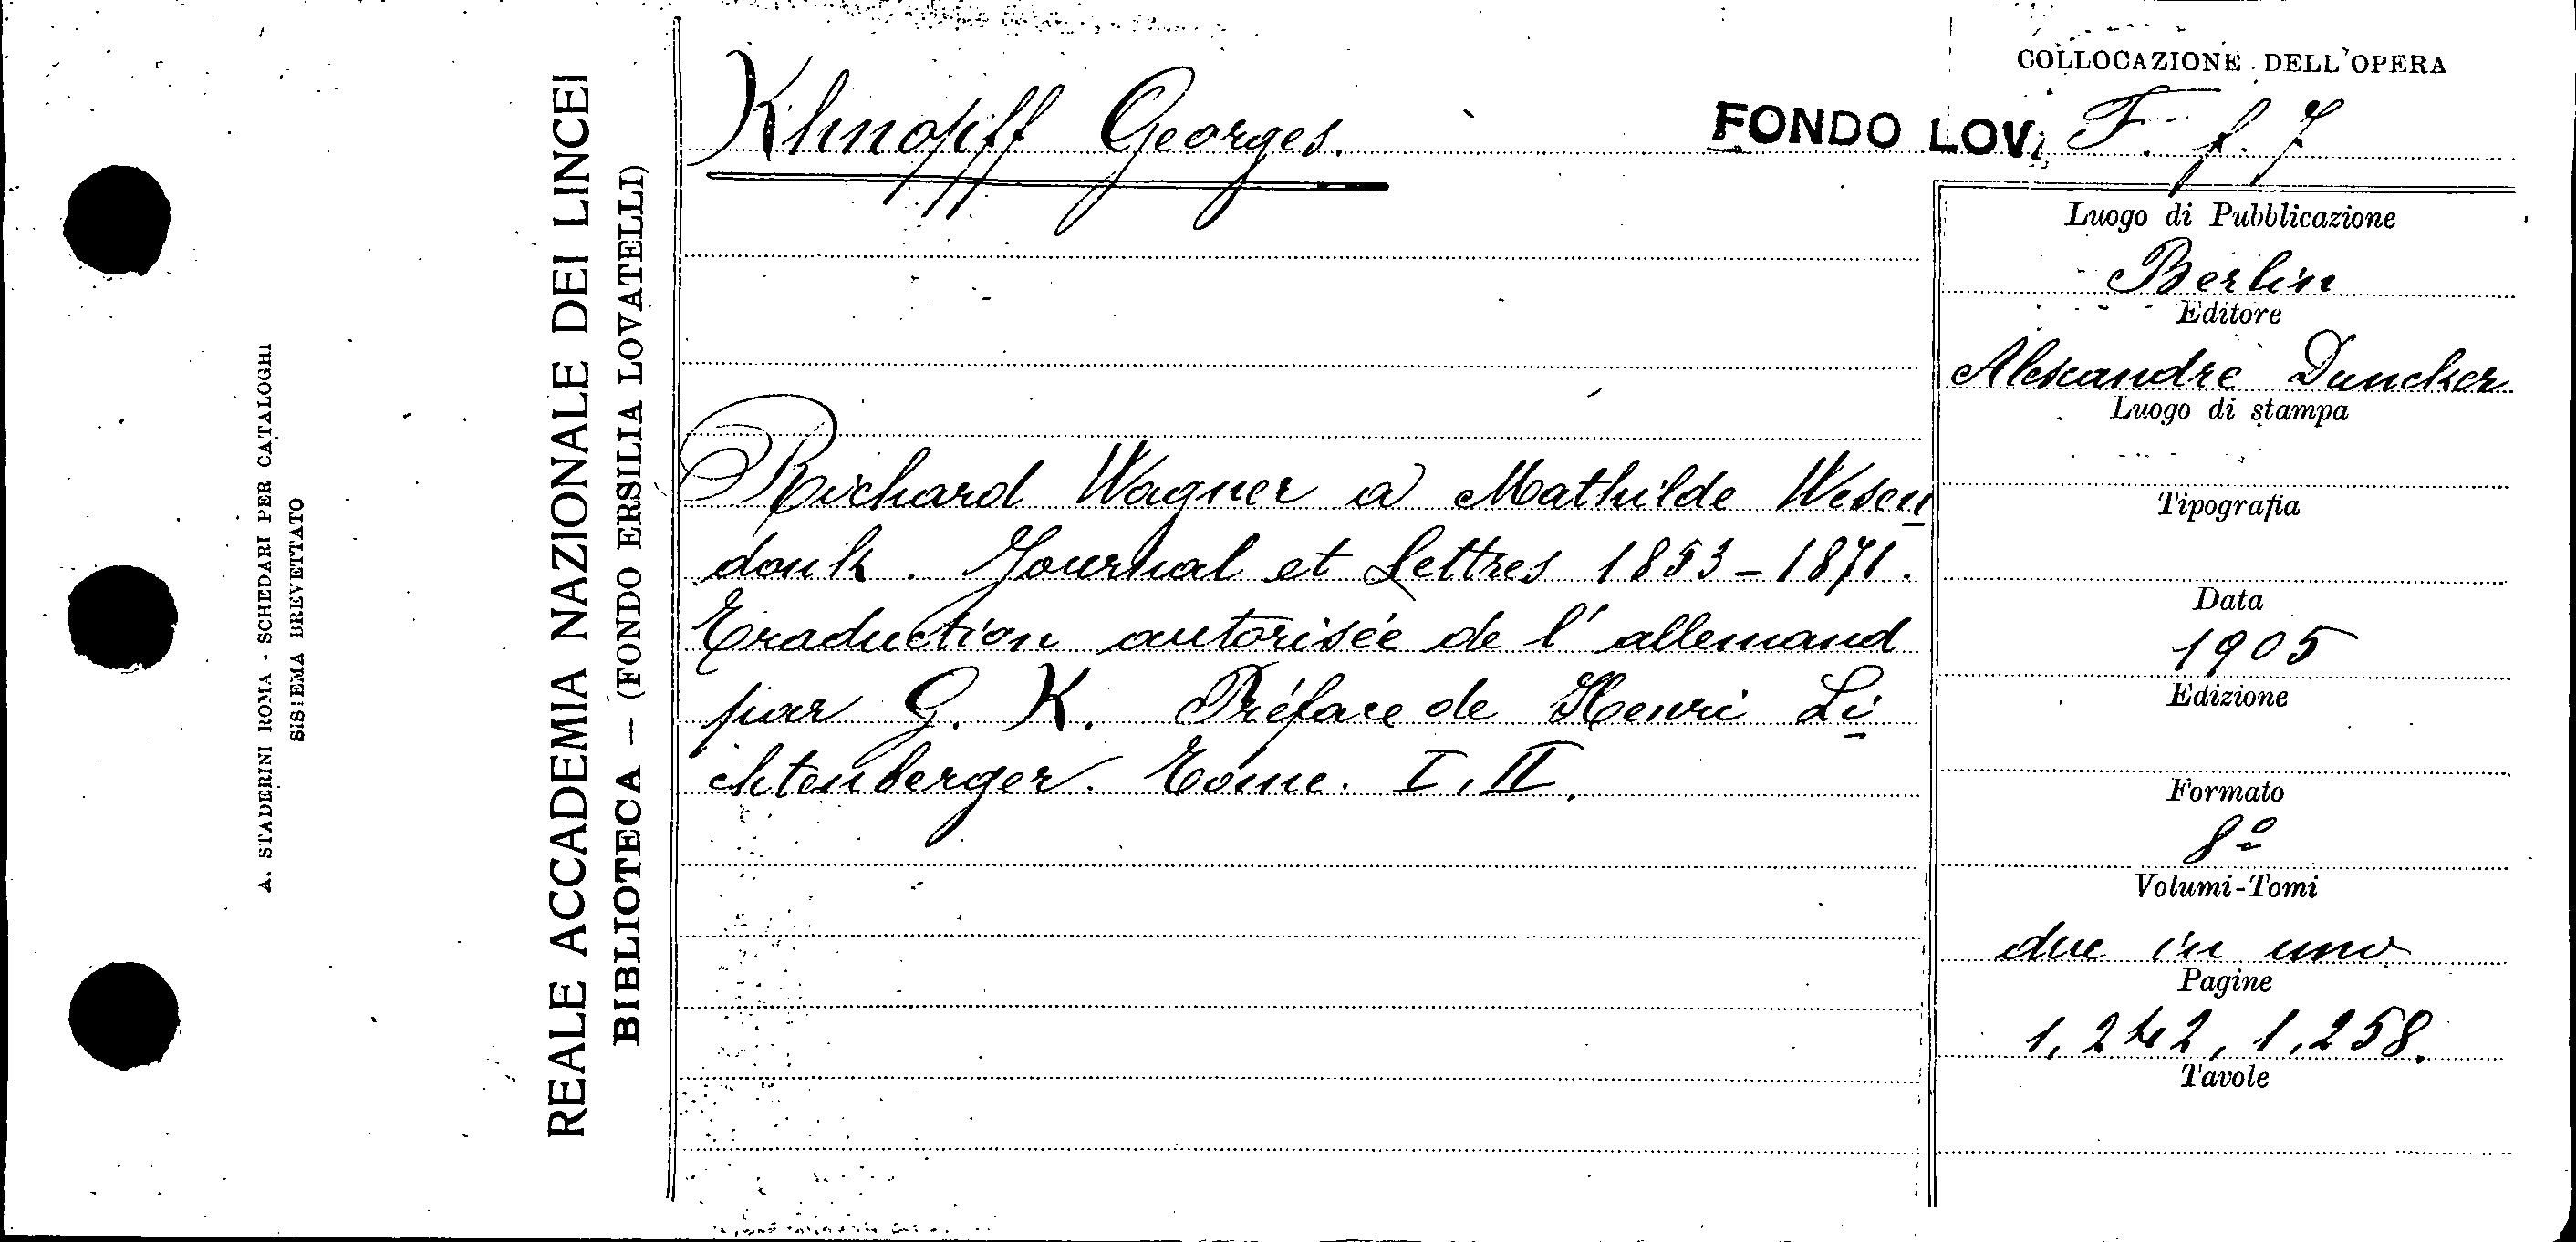 A. STADERINI ROMA - SCHEDARI PER CATALOGHI
SISTEMA BREVETTATO
REALE ACCADEMIA NAZIONALE DEI LINCEI
BIBLIOTECA — (FONDO ERSILIA LOVATELLI)
Khnopff Georges.
Richard Wagner a Mathilde Wesen
donk. Journal et Lettres 1853-1871.
Traduction autorisée de l'allemand
par G. K. Préface de Henri Li
chtenberger. Tome. I, II.
COLLOCAZIONE DELL'OPERA
FONDO LOV. F. f. 7
Luogo di Pubblicazione
Berlin
Editore
Alexandre Duncker
Luogo di stampa
Tipografia
Data
1905
Edizione
Formato
8º
Volumi-Tomi
due in uno
Pagine
1,242, 1,258.
Tavole